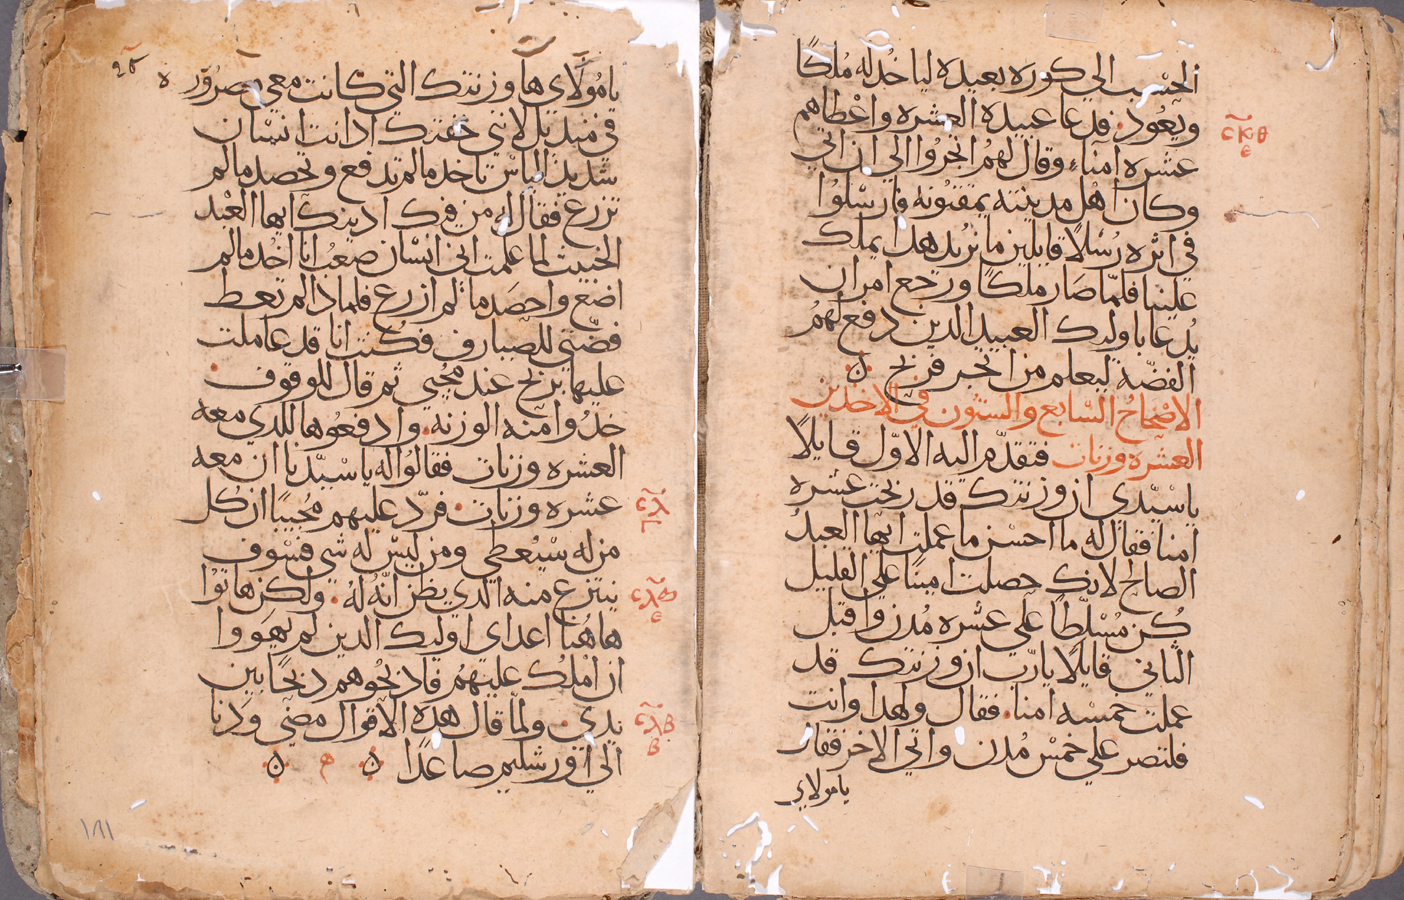 الحسب الي كوره بعيده لياخد له ملكًا
ويعود. فدعا عبيده العشره واعطاهم
عشره امناء وقال لهم اتجروا الي ان اتي
وكان اهل مدينته يمقتونه فارسلوا
في اثره رسلًا قايلين ما نريد هدا يملك
علينا فلما صار ملكًا ورجع امر ان
يدعا باوليك العبيد الدين دفع لهم
الفضه ليعلم من اتجر فربح
الاصحاح السابع والستون في الاخدين
العشره وزنات فتقدم اليه الاول قايلًا
ياسيدي ان وزنتك قد ربحت عشره
امنا فقال له ما احسن ما عملت ايها العبد
الصالح لانك حصلت امينًا علي القليل
كن مسلطًا علي عشره مدن واقبل
الثاني قايلًا يارب ان وزنتك قد
عملت خمسه امنا. فقال ولهدا وانت
فلتصر علي خمس مدن واتي الاخر فقال
يامولاي
ⲥⲕⲑ
ⲉ
يامولاي ها وزنتك التي كانت معي مصروره
في منديل لاني خفتك اد انت انسان
شديد الباس تاخد ما لم تدفع وتحصد ما لم
تزرع فقال له من فيك ادينك ايها العبد
الخبيث لما علمت اني انسان صعب انا اخد ما لم
اضع واحصد ما لم ازرع فلمادا لم تعط
فضتي للصيارف فكنت انا قد عاملت
عليها بربح عند مجيي ثم قال للوقوف.
خدوا منه الوزنه. وادفعوها للدي معه
العشره وزنات فقالوا له ياسيدنا ان معه
عشره وزنات. فرد عليهم مجيبًا ان كل
من له سيعطي ومن ليس له شي فسوف
ينتزع منه الدي يظن انه له. ولكن هاتوا
هاهنا اعداي اوليك الدين لم يهووا
ان املك عليهم فادبحوهم دبحًا بين
يدي. ولما قال هده الاقوال مضي ودنا
الي اورشليم صاعدًا
ⲥⲗ
ⲅ
ⲥⲗⲁ
ⲉ
ⲥⲗⲃ
ⲃ
١٨١